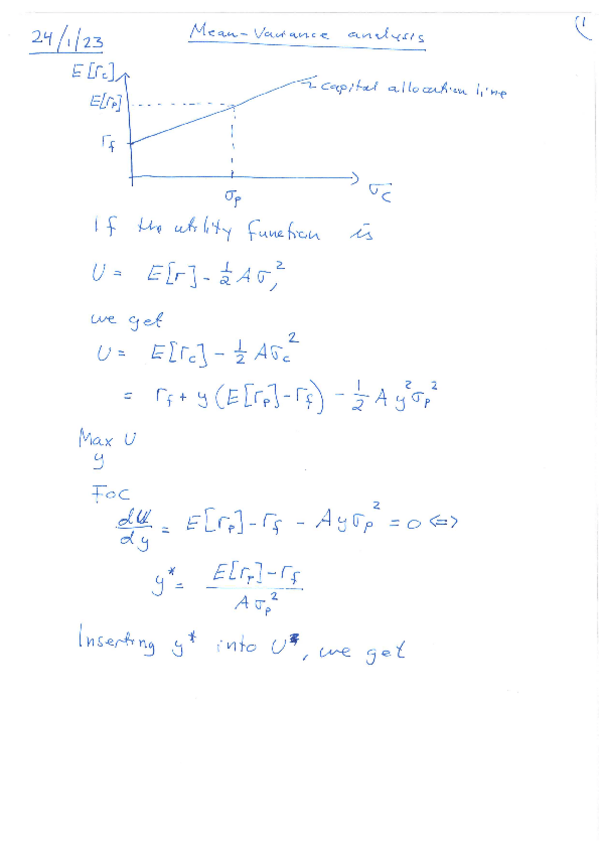 (1
24/1/23 Mean-Variance analysis
E[r_c]
capital allocation line
E[r_p]
r_f
σ_p
σ_c
If the utility function is
U = E[r] - 1/2 Aσ²,
we get
U = E[r_c] - 1/2 Aσ_c²
= r_f + y (E[r_p] - r_f) - 1/2 A y² σ_p²
Max U
y
FOC
dU/dy = E[r_p] - r_f - A y σ_p² = 0 <=>
y* = (E[r_p] - r_f) / (A σ_p²)
Inserting y* into U*, we get